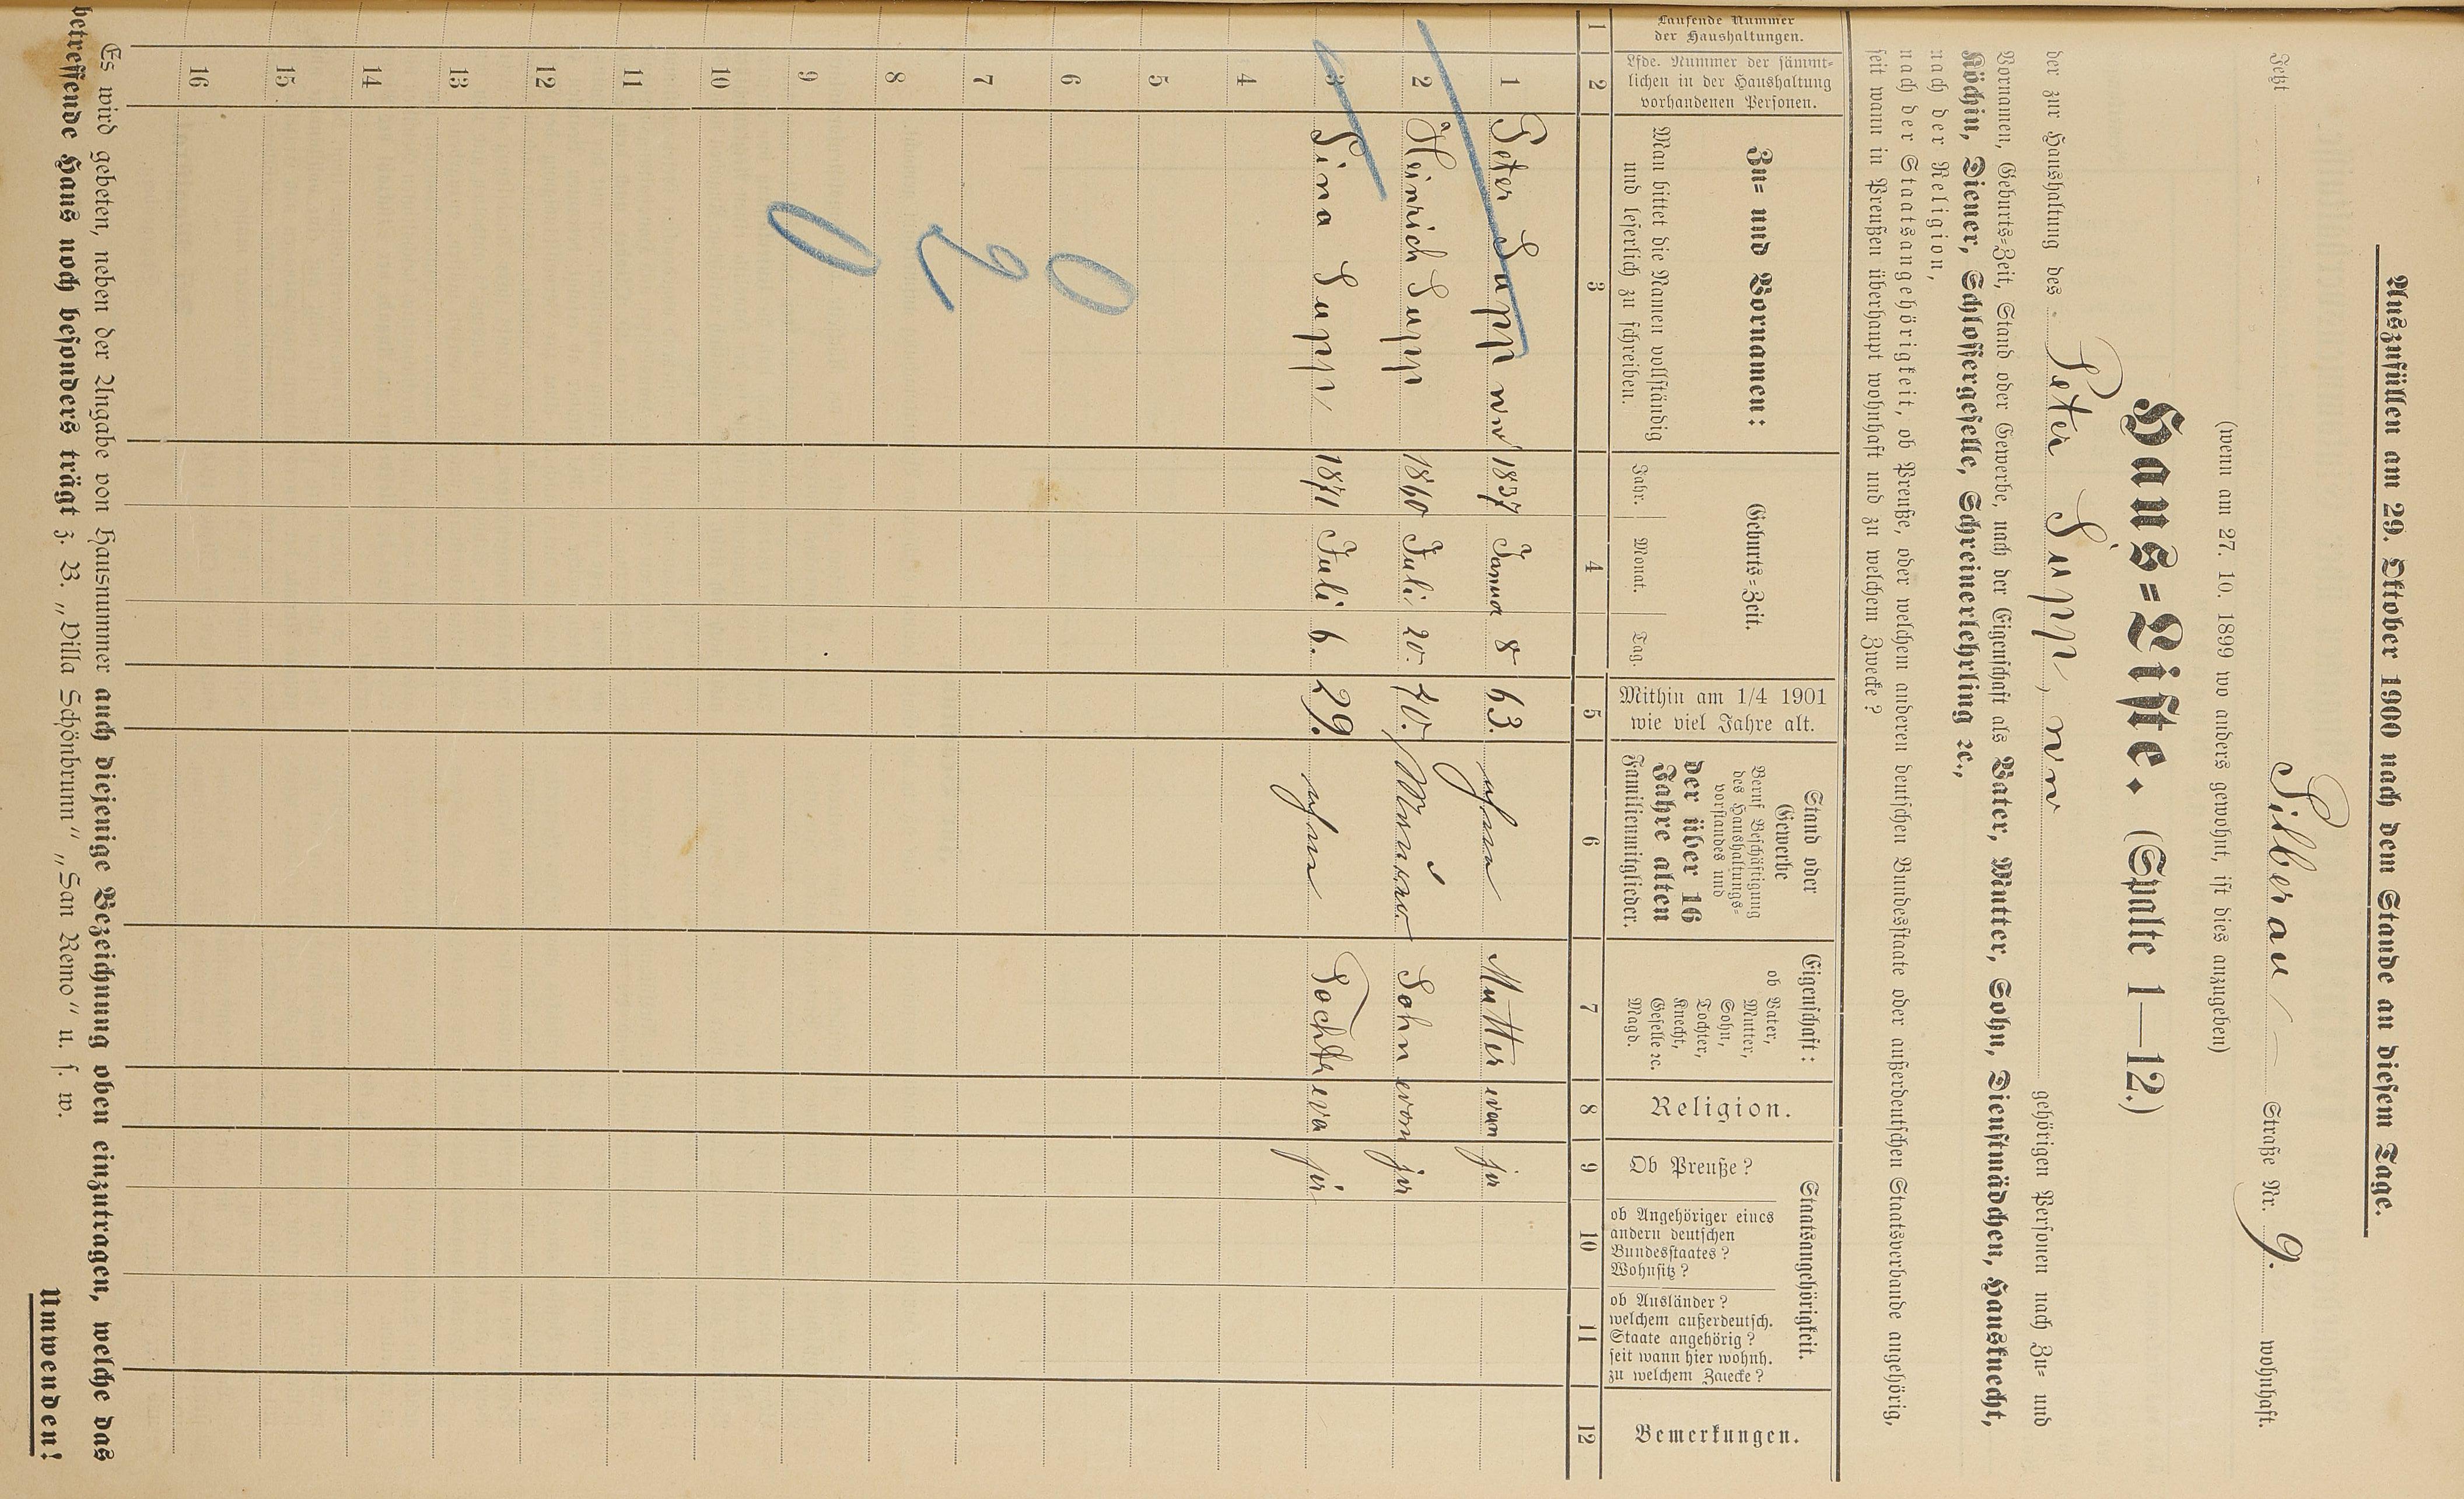 Auszufüllen am 29. Oktober 1900 nach dem Stande an diesem Tage.
Jetzt Silberau Straße Nr. 9. wohnhaft.
(wenn am 27. 10. 1899 wo anders gewohnt, ist dies anzugeben)
Haus=Liste. (Spalte 1—12.)
der zur Haushaltung des Peter Supp, ww gehörigen Personen nach Zu= und
Vornamen, Geburts=Zeit, Stand oder Gewerbe, nach der Eigenschaft als Vater, Mutter, Sohn, Dienstmädchen, Hausknecht,
Köchin, Diener, Schlossergeselle, Schreinerlehrling ec.,
nach der Religion,
nach der Staatsangehörigkeit, ob Preuße, oder welchem anderen deutschen Bundesstaate oder außerdeutschen Staatsverbande angehörig,
seit wann in Preußen überhaupt wohnhaft und zu welchem Zwecke?
Laufende Nummer
der Haushaltungen.
Lfde. Nummer der sämmt=
lichen in der Haushaltung
vorhandenen Personen.
Zu= und Vornamen:
Man bittet die Namen vollständig
und leserlich zu schreiben.
Geburts=Zeit.
Jahr. Monat. Tag.
Mithin am 1/4 1901
wie viel Jahre alt.
Stand oder
Gewerbe
Beruf Beschäftigung
des Haushaltungs=
vorstandes und
der über 16
Jahre alten
Familienmitglieder.
Eigenschaft:
ob Vater,
Mutter,
Sohn,
Tochter,
Knecht,
Geselle ec.
Magd.
Religion.
Staatsangehörigkeit.
Ob Preuße?
ob Angehöriger eines
andern deutschen
Bundesstaates?
Wohnsitz?
ob Ausländer?
welchem außerdeutsch.
Staate angehörig?
seit wann hier wohnh.
zu welchem Zwecke?
Bemerkungen.
1 2 3 4 5 6 7 8 9 10 11 12
1 Peter Supp ww 1837 Janua 8 63. ohne Mutter evan ja
2 Heinrich Supp 1860 Juli 20. 40. Sohn evan ja
3 Lina Supp 1871 Juli 6. 29. ohne Tochtr eva ja
4
5
6 0
7 2
8
9 0
10
11
12
13
14
15
16
Es wird gebeten, neben der Angabe von Hausnummer auch diejenige Bezeichnung oben einzutragen, welche das
betreffende Haus noch besonders trägt z. B. „Villa Schönbrunn“ „San Remo“ u. s. w.
Umwenden!